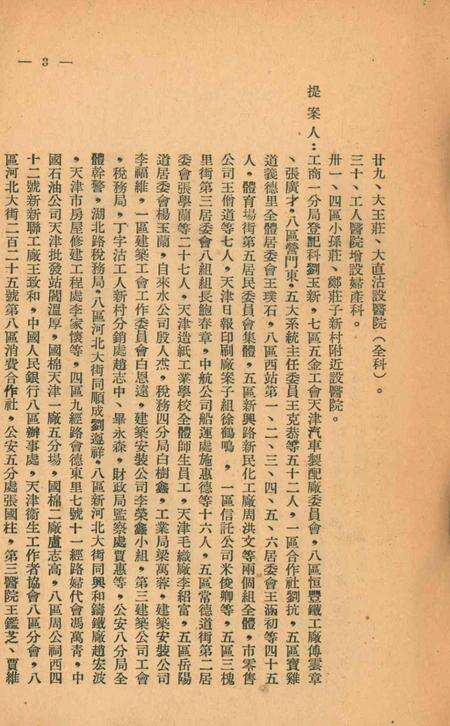 — 3 —
廿九、大王莊、大直沽設醫院（全科）。
三十、工人醫院增設婦產科。
卅一、四區小孫莊、鄭莊子新村附近設醫院。
提案人：工商一分局登記科劉玉新，七區五金工會天津汽車製配廠委員會，八區恒豐鐵工廠傅雲章
、張廣才，八區營門東，五大系統主任委員王克恭等五十二人，一區合作社劉抗，五區寶雞
道義德里全體居委會王璞石，八區西站第一、二、三、四、五、六居委會王涵初等四十五
人，體育場街第五居民委員會集體，五區新興路新民化工廠周洪文等兩個組全體，市零售
公司王偺道等七人，天津日報印刷廠案子組徐鶴鳴，一區信託公司米俊卿等，五區三槐
里街第三居委會八組組長鮑春章，中航公司船運處施惠德等十六人，五區常德道街第二居
委會張學蘭等二十七人，天津造紙工業學校全體師生員工，天津毛織廠李紹富，五區岳陽
道居委會楊玉蘭，自來水公司殷人杰，稅務四分局白樹鑫，工業局梁萬蓉，建築安裝公司
李福維，一區建築工會工作委員會白恩遠，建築安裝公司李榮鑫小組，第三建築公司工會
，稅務局，丁字沽工人新村分銷處趙志中、畢永森，財政局監察處賈惠等，公安八分局全
體幹警，湖北路稅務局，八區河北大街同順成劉遵祥，八區新河北大街同興和鑄鐵廠趙宏波
，天津市房屋修建工程處李家懷等，四區九經路會德東里七號十一經路婦代會馮萬青，中
國石油公司天津批發站閻溫厚，國棉天津一廠五分場，國棉二廠盧志高，八區周公祠西四
十二號新新聯工廠王政和，中國人民銀行八區辦事處，天津衛生工作者協會八區分會，八
區河北大街二百二十五號第八區消費合作社，公安五分處張國柱，第三醫院王鑑芝、賈維